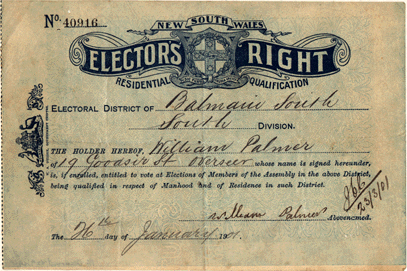 No. 40916
NEW SOUTH WALES
ELECTORS RIGHT
RESIDENTIAL QUALIFICATION
ELECTORAL DISTRICT OF Balmain South
South DIVISION.
THE HOLDER HEREOF, William Palmer
of 19 Goodsir St Overseer whose name is signed hereunder,
is, is enrolled, entitled to vote at Elections of Members of the Assembly in the above District,
being qualified in respect of Manhood and of Residence in such District.
William Palmer Abovenamed.
23/8/01
The 26th day of January 1901.